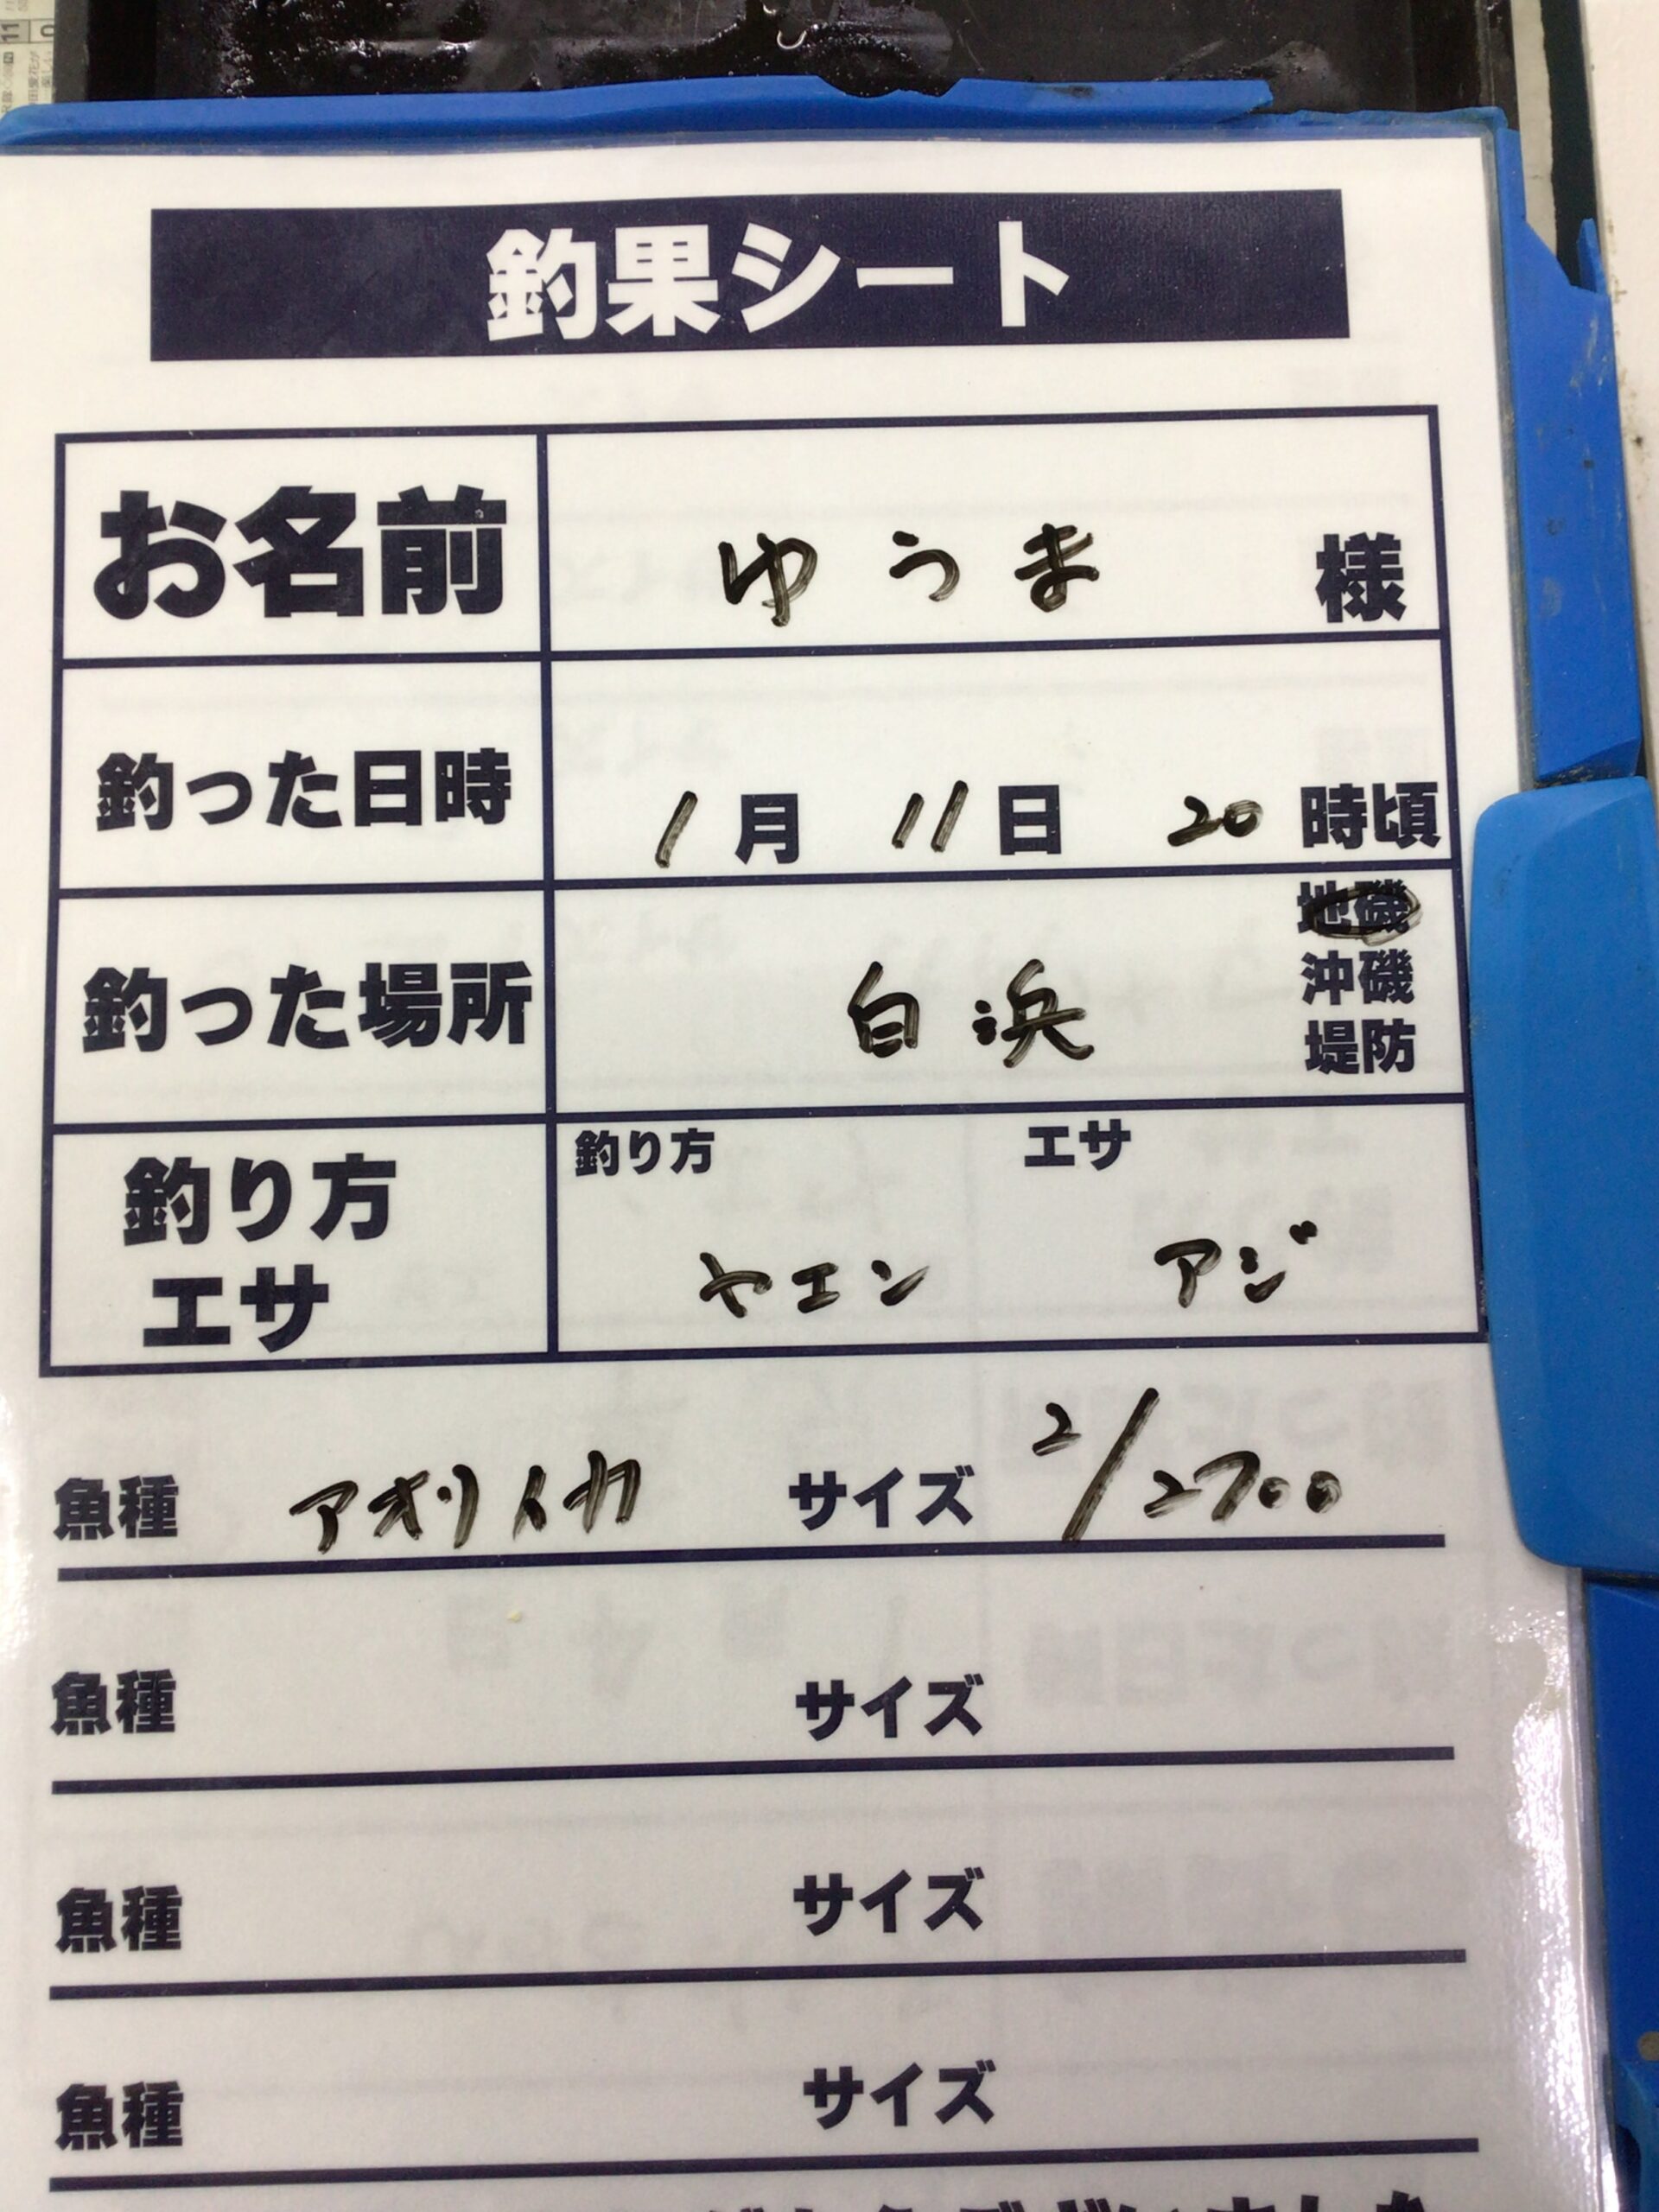 釣果シート
お名前 ゆうま 様
釣った日時 1月 11日 20時頃
釣った場所 白浜 地磯
沖磯
堤防
釣り方 エサ 釣り方 ヤエン エサ アジ
魚種 アオリイカ サイズ 2/2700
魚種 サイズ
魚種 サイズ
魚種 サイズ